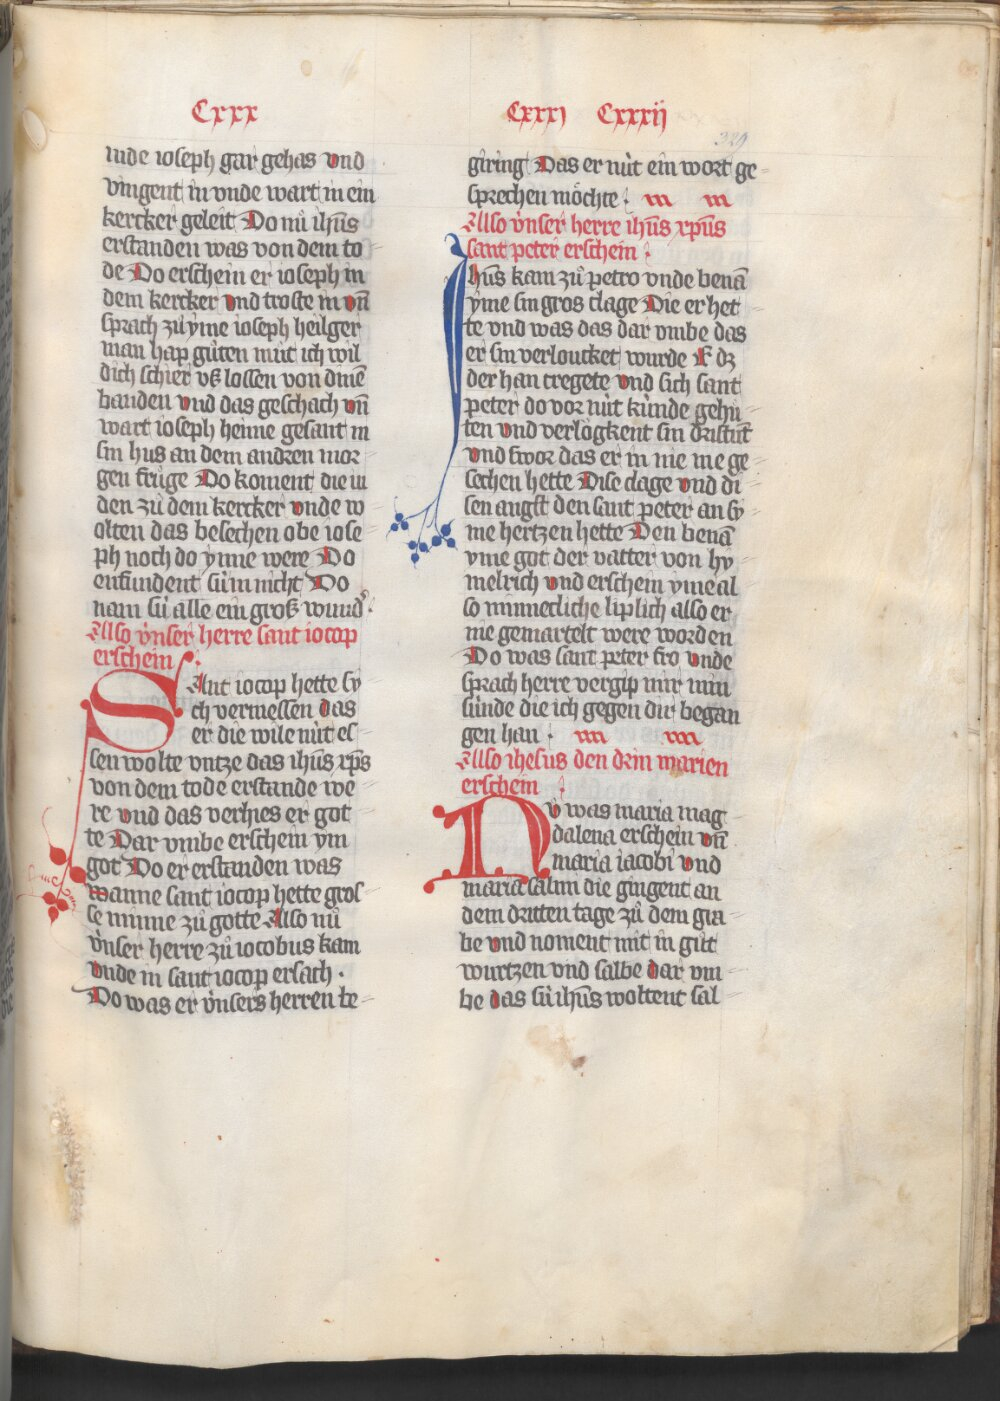 Cxxx
Cxxxj Cxxxij
329
inde ioseph gar gehas vnd
vingent in vnde wart in ein
kercker geleit Do nu̍ ih̄us
erstanden was von dem to
de Do erschein er ioseph in
dem kercker vnd troste in vn̄
sprach zu̍ yme ioseph heilger
man hap gu̍ten mu̍t ich wil
dich schier vß lossen von dinē
banden vnd das geschach vn̄
wart ioseph heime gesant in
sin hus an dem andren mor
gen fru̍ge Do koment die iu
den zu̍ dem kercker vnde w
olten das besechen obe iose
ph noch do ynne were Do
enfundent su̍ in nicht Do
nam su̍ alle ein groß wund̾
Also v̍nser herre sant iocop
erschein
SAnt iocop hette sy
ch vermessen das
er die wile nu̍t es
sen wolte vntze das ih̄us xp̄s
von dem tode erstande we
re vnd das verhies er got
te Dar vmbe erschein ym
got Do er erstanden was
wanne sant iocop hette gros
se minne zu̍ gotte Also nu̍
v̍nser herre zu̍ iocobus kam
vnde in sant iocop ersach ·
Do was er v̍nsers herren be
giring Das er nu̍t ein wort ge
sprechen möchte
Also v̍nser herre ih̄us xp̄us
sant peter erschein
Ihūs kam zu̍ petro vnde benā
yme sin gros clage Die er het
te vnd was das dar vmbe das
er sin verloucket wurde Er dz
der han cregete vnd sich sant
peter do vor nu̍t ku̍nde gehu̍
ten vnd verlögkent sin dristunt
vnd swor das er in nie me ge
sechen hette Dise clage vnd di
sen angst den sant peter an sy
me hertzen hette Den benā
yme got der vatter von hy
melrich vnd erschein yme al
so minnecliche liplich also er
nie gemartelt were worden
Do was sant peter fro vnde
sprach herre vergip mir min
su̍nde die ich gegen dir began
gen han ·
Also ihesus den drin marien
erschein
Nv̍ was maria mag
dalena erschein vn̄
maria iacobi vnd
maria salim die gingent an
dem dritten tage zu̍ dem gra
be vnd noment mit in gu̍t
wurtzen vnd salbe dar vm
be das su̍ ih̄us woltent sal